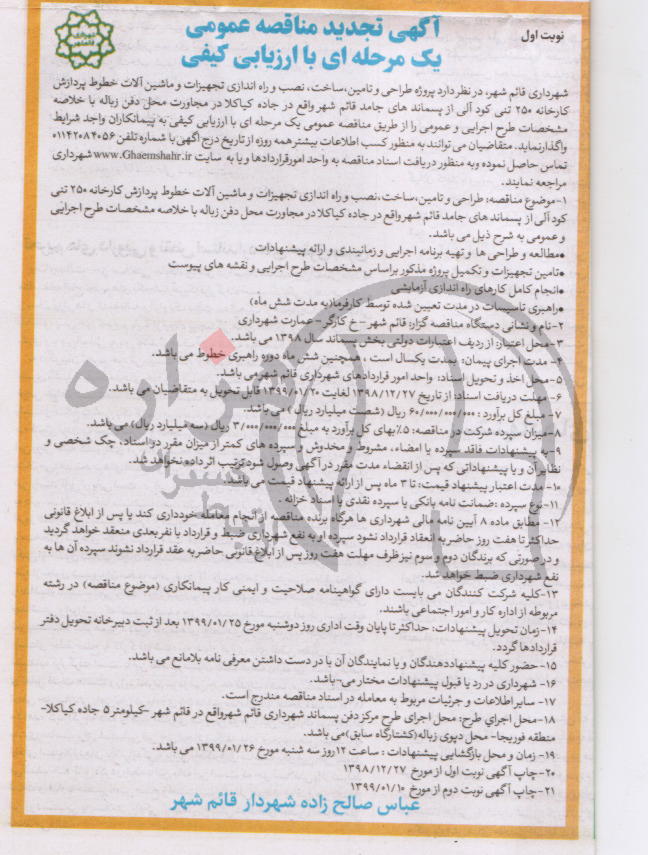 نوبت اول
آگهی تجدید مناقصه عمومی
یک مرحله ای با ارزیابی کیفی
شهرداری قائم شهر
شهرداری قائم شهر، در نظر دارد پروژه طراحی و تامین، ساخت، نصب و راه اندازی تجهیزات و ماشین آلات خطوط پردازش
کارخانه ۲۵۰ تنی کود آلی از پسماند های جامد قائم شهر واقع در جاده کیاکلا در مجاورت محل دفن زباله با خلاصه
مشخصات طرح اجرایی و عمومی را از طریق مناقصه عمومی یک مرحله ای با ارزیابی کیفی به پیمانکاران واجد شرایط
واگذار نماید. متقاضیان می توانند به منظور کسب اطلاعات بیشتر همه روزه از تاریخ درج آگهی با شماره تلفن ۰۱۱۴۲۰۸۴۰۵۶
تماس حاصل نموده وبه منظور دریافت اسناد مناقصه به واحد امور قراردادها و یا به سایت www.Ghaemshahr.ir شهرداری
مراجعه نمایند.
۱-موضوع مناقصه: طراحی و تامین، ساخت، نصب و راه اندازی تجهیزات و ماشین آلات خطوط پردازش کارخانه ۲۵۰ تنی
کود آلی از پسماند های جامد قائم شهر واقع در جاده کیاکلا در مجاورت محل دفن زباله با خلاصه مشخصات طرح اجرایی
و عمومی به شرح ذیل می باشد.
•مطالعه و طراحی ها و تهیه برنامه اجرایی و زمانبندی و ارائه پیشنهادات
•تامین تجهیزات و تکمیل پروژه مذکور براساس مشخصات طرح اجرایی و نقشه های پیوست
•انجام کامل کارهای راه اندازی آزمایشی
•راهبری تاسیسات در مدت تعیین شده توسط کارفرما(به مدت شش ماه)
۲-نام و نشانی دستگاه مناقصه گزار: قائم شهر - خ کارگر- عمارت شهرداری
۳-محل اعتبار: از ردیف اعتبارات دولتی بخش پسماند سال ۱۳۹۸ می باشد.
۴- مدت اجرای پیمان: بمدت یکسال است ، همچنین شش ماه دوره راهبری خطوط می باشد.
۵-محل اخذ و تحویل اسناد: واحد امور قراردادهای شهرداری قائم شهر می باشد.
۶- مهلت دریافت اسناد: از تاریخ ۱۳۹۸/۱۲/۲۷ لغایت ۱۳۹۹/۰۱/۲۰ قابل تحویل به متقاضیان می باشد.
۷- مبلغ کل برآورد : ۶۰/۰۰۰/۰۰۰/۰۰۰ ریال (شصت میلیارد ریال ) می باشد.
۸-میزان سپرده شرکت در مناقصه: ۵٪بهای کل برآورد به مبلغ ۳/۰۰۰/۰۰۰/۰۰۰ ریال (سه میلیارد ریال) می باشد.
۹-به پیشنهادات فاقد سپرده یا امضاء، مشروط و مخدوش و سپرده های کمتر از میزان مقرر در اسناد، چک شخصی و
نظایر آن و یا پیشنهاداتی که پس از انقضاء مدت مقرر در آگهی وصول شود ترتیب اثر داده نخواهد شد.
۱۰- مدت اعتبار پیشنهاد قیمت: تا ۳ ماه پس از ارائه پیشنهاد قیمت می باشد.
۱۱-نوع سپرده :ضمانت نامه بانکی یا سپرده نقدی یا اسناد خزانه .
۱۲- مطابق ماده ۸ آیین نامه مالی شهرداری ها هرگاه برنده مناقصه از انجام معامله خودداری کند یا پس از ابلاغ قانونی
حداکثر تا هفت روز حاضر به انعقاد قرارداد نشود سپرده او به نفع شهرداری ضبط و قرارداد با نفر بعدی منعقد خواهد گردید
و در صورتی که برندگان دوم و سوم نیز ظرف مهلت هفت روز پس از ابلاغ قانونی حاضر به عقد قرارداد نشوند سپرده آن ها به
نفع شهرداری ضبط خواهد شد.
۱۳-کلیه شرکت کنندگان می بایست دارای گواهینامه صلاحیت و ایمنی کار پیمانکاری (موضوع مناقصه) در رشته
مربوطه از اداره کار و امور اجتماعی باشند.
۱۴-زمان تحویل پیشنهادات: حداکثر تا پایان وقت اداری روز دوشنبه مورخ ۱۳۹۹/۰۱/۲۵ بعد از ثبت دبیرخانه تحویل دفتر
قراردادها گردد.
۱۵-حضور کلیه پیشنهاددهندگان و یا نمایندگان آن با در دست داشتن معرفی نامه بلامانع می باشد.
۱۶- شهرداری در رد یا قبول پیشنهادات مختار می-باشد.
۱۷- سایر اطلاعات و جزئیات مربوط به معامله در اسناد مناقصه مندرج است.
۱۸-محل اجرای طرح: محل اجرای طرح مرکز دفن پسماند شهرداری قائم شهرواقع در قائم شهر -کیلومتر ۵ جاده کیاکلا-
منطقه فوریجا- محل دپوی زباله (کشتارگاه سابق)می باشد.
۱۹- زمان و محل بازگشایی پیشنهادات : ساعت ۱۲روز سه شنبه مورخ ۱۳۹۹/۰۱/۲۶ می باشد.
۲۰-چاپ آگهی نوبت اول از مورخ ۱۳۹۸/۱۲/۲۷
۲۱-چاپ آگهی نوبت دوم از مورخ ۱۳۹۹/۰۱/۱۰
عباس صالح زاده شهردار قائم شهر
هزاره